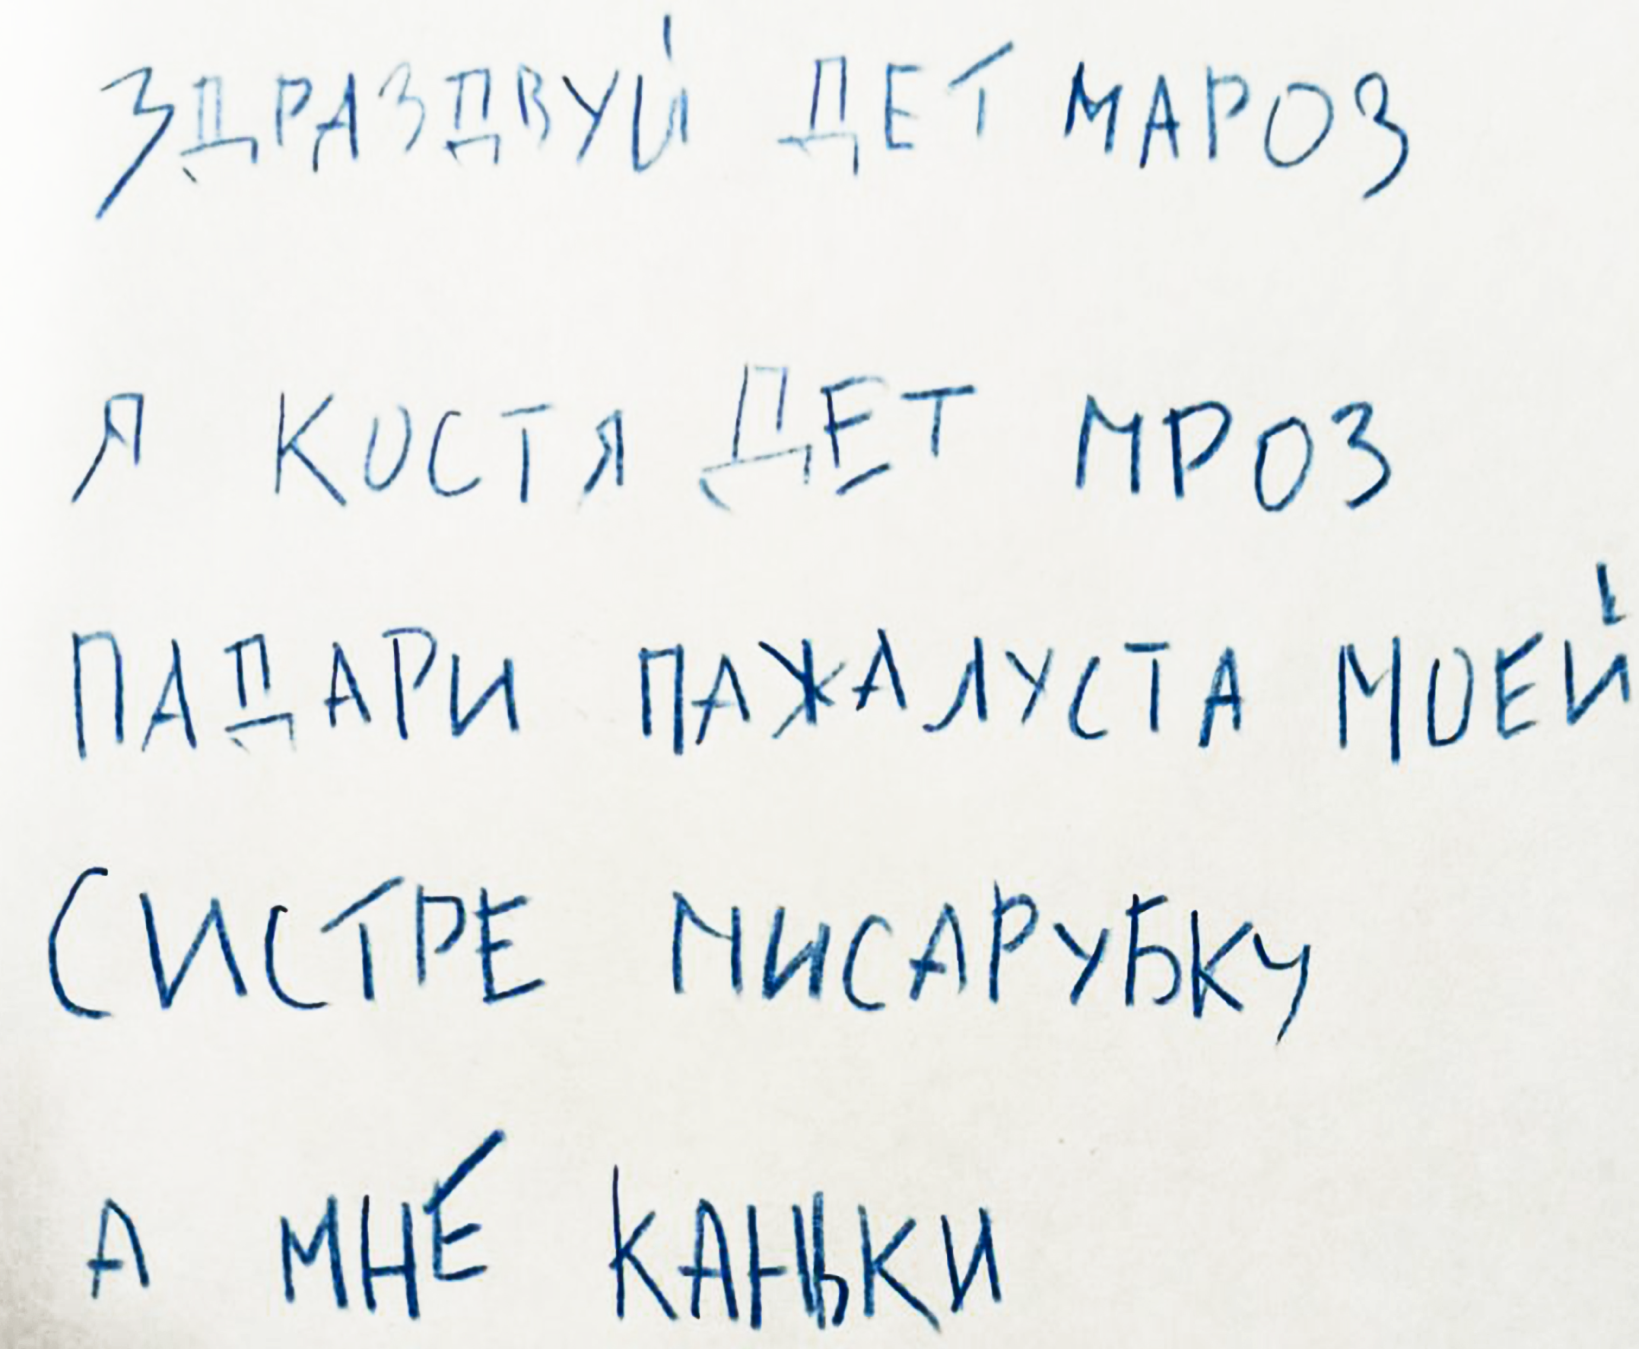 ЗДРАЗДВУЙ ДЕТ МАРОЗ
Я КОСТЯ ДЕТ МРОЗ
ПАДАРИ ПАЖАЛУСТА МОЕЙ
СИСТРЕ МИСАРУБКУ
А МНЕ КАНЬКИ